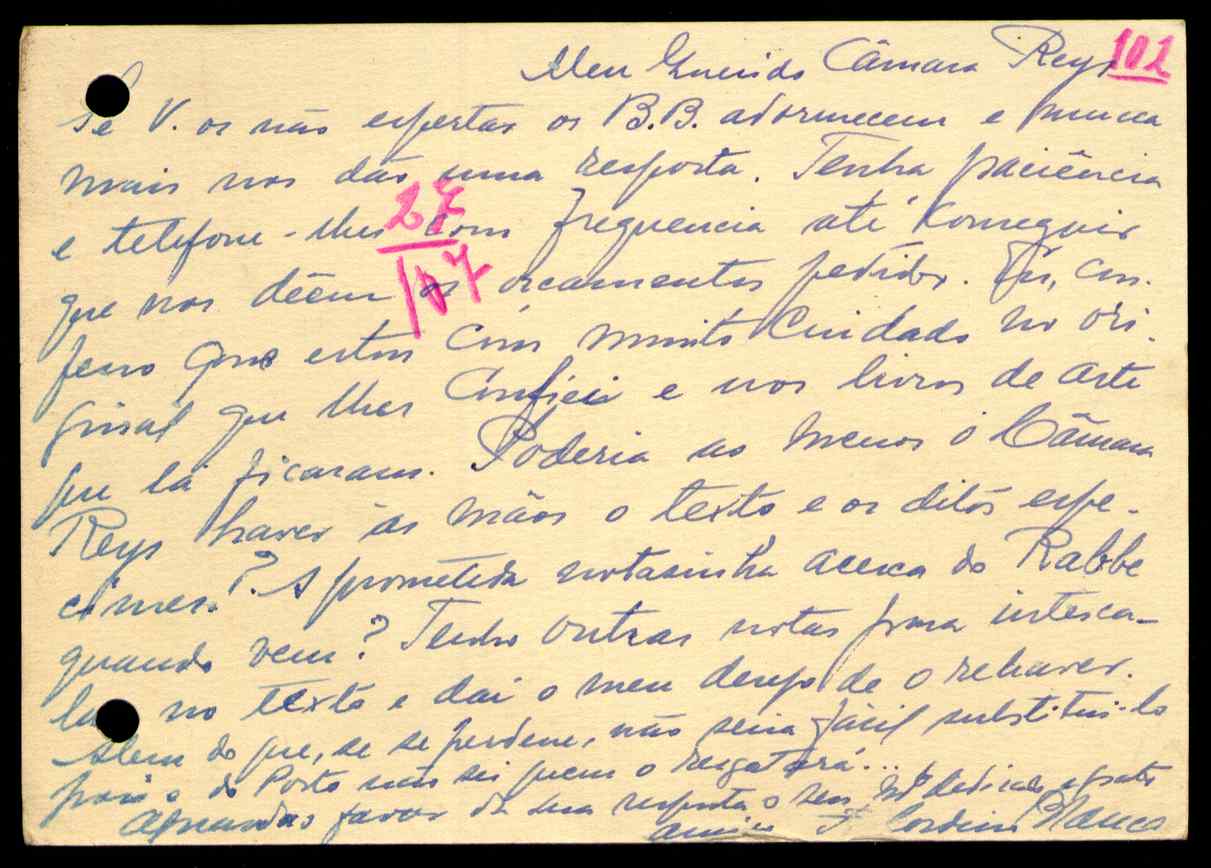 Meu Querido Câmara Reys 102
Se V. os não espertar os B.B. adormecem e nunca
mais nos dão uma resposta. Tenha paciência
e telefone-lhes com frequencia até conseguir
27
107
que nos dêem os orçamentos pedidos. Eu, con-
fesso que estou com muito cuidado no ori-
ginal que lhes confiei e nos livros de arte
que lá ficaram. Poderia ao menos o Câmara
Reys haver às mãos o texto e os ditos espe-
cimes? A prometida notasinha acerca do Rabbe
quando vem? Tenho outras notas para interca-
lar no texto e daí o meu desejo de o rehaver.
Alem do que, se se perdesse, não seria fácil substitui-lo
pois o do Porto não sei quem o resgatará...
Aguardas favor da sua resposta o seu dedicado e grato
amigo Cordeiro Blanco